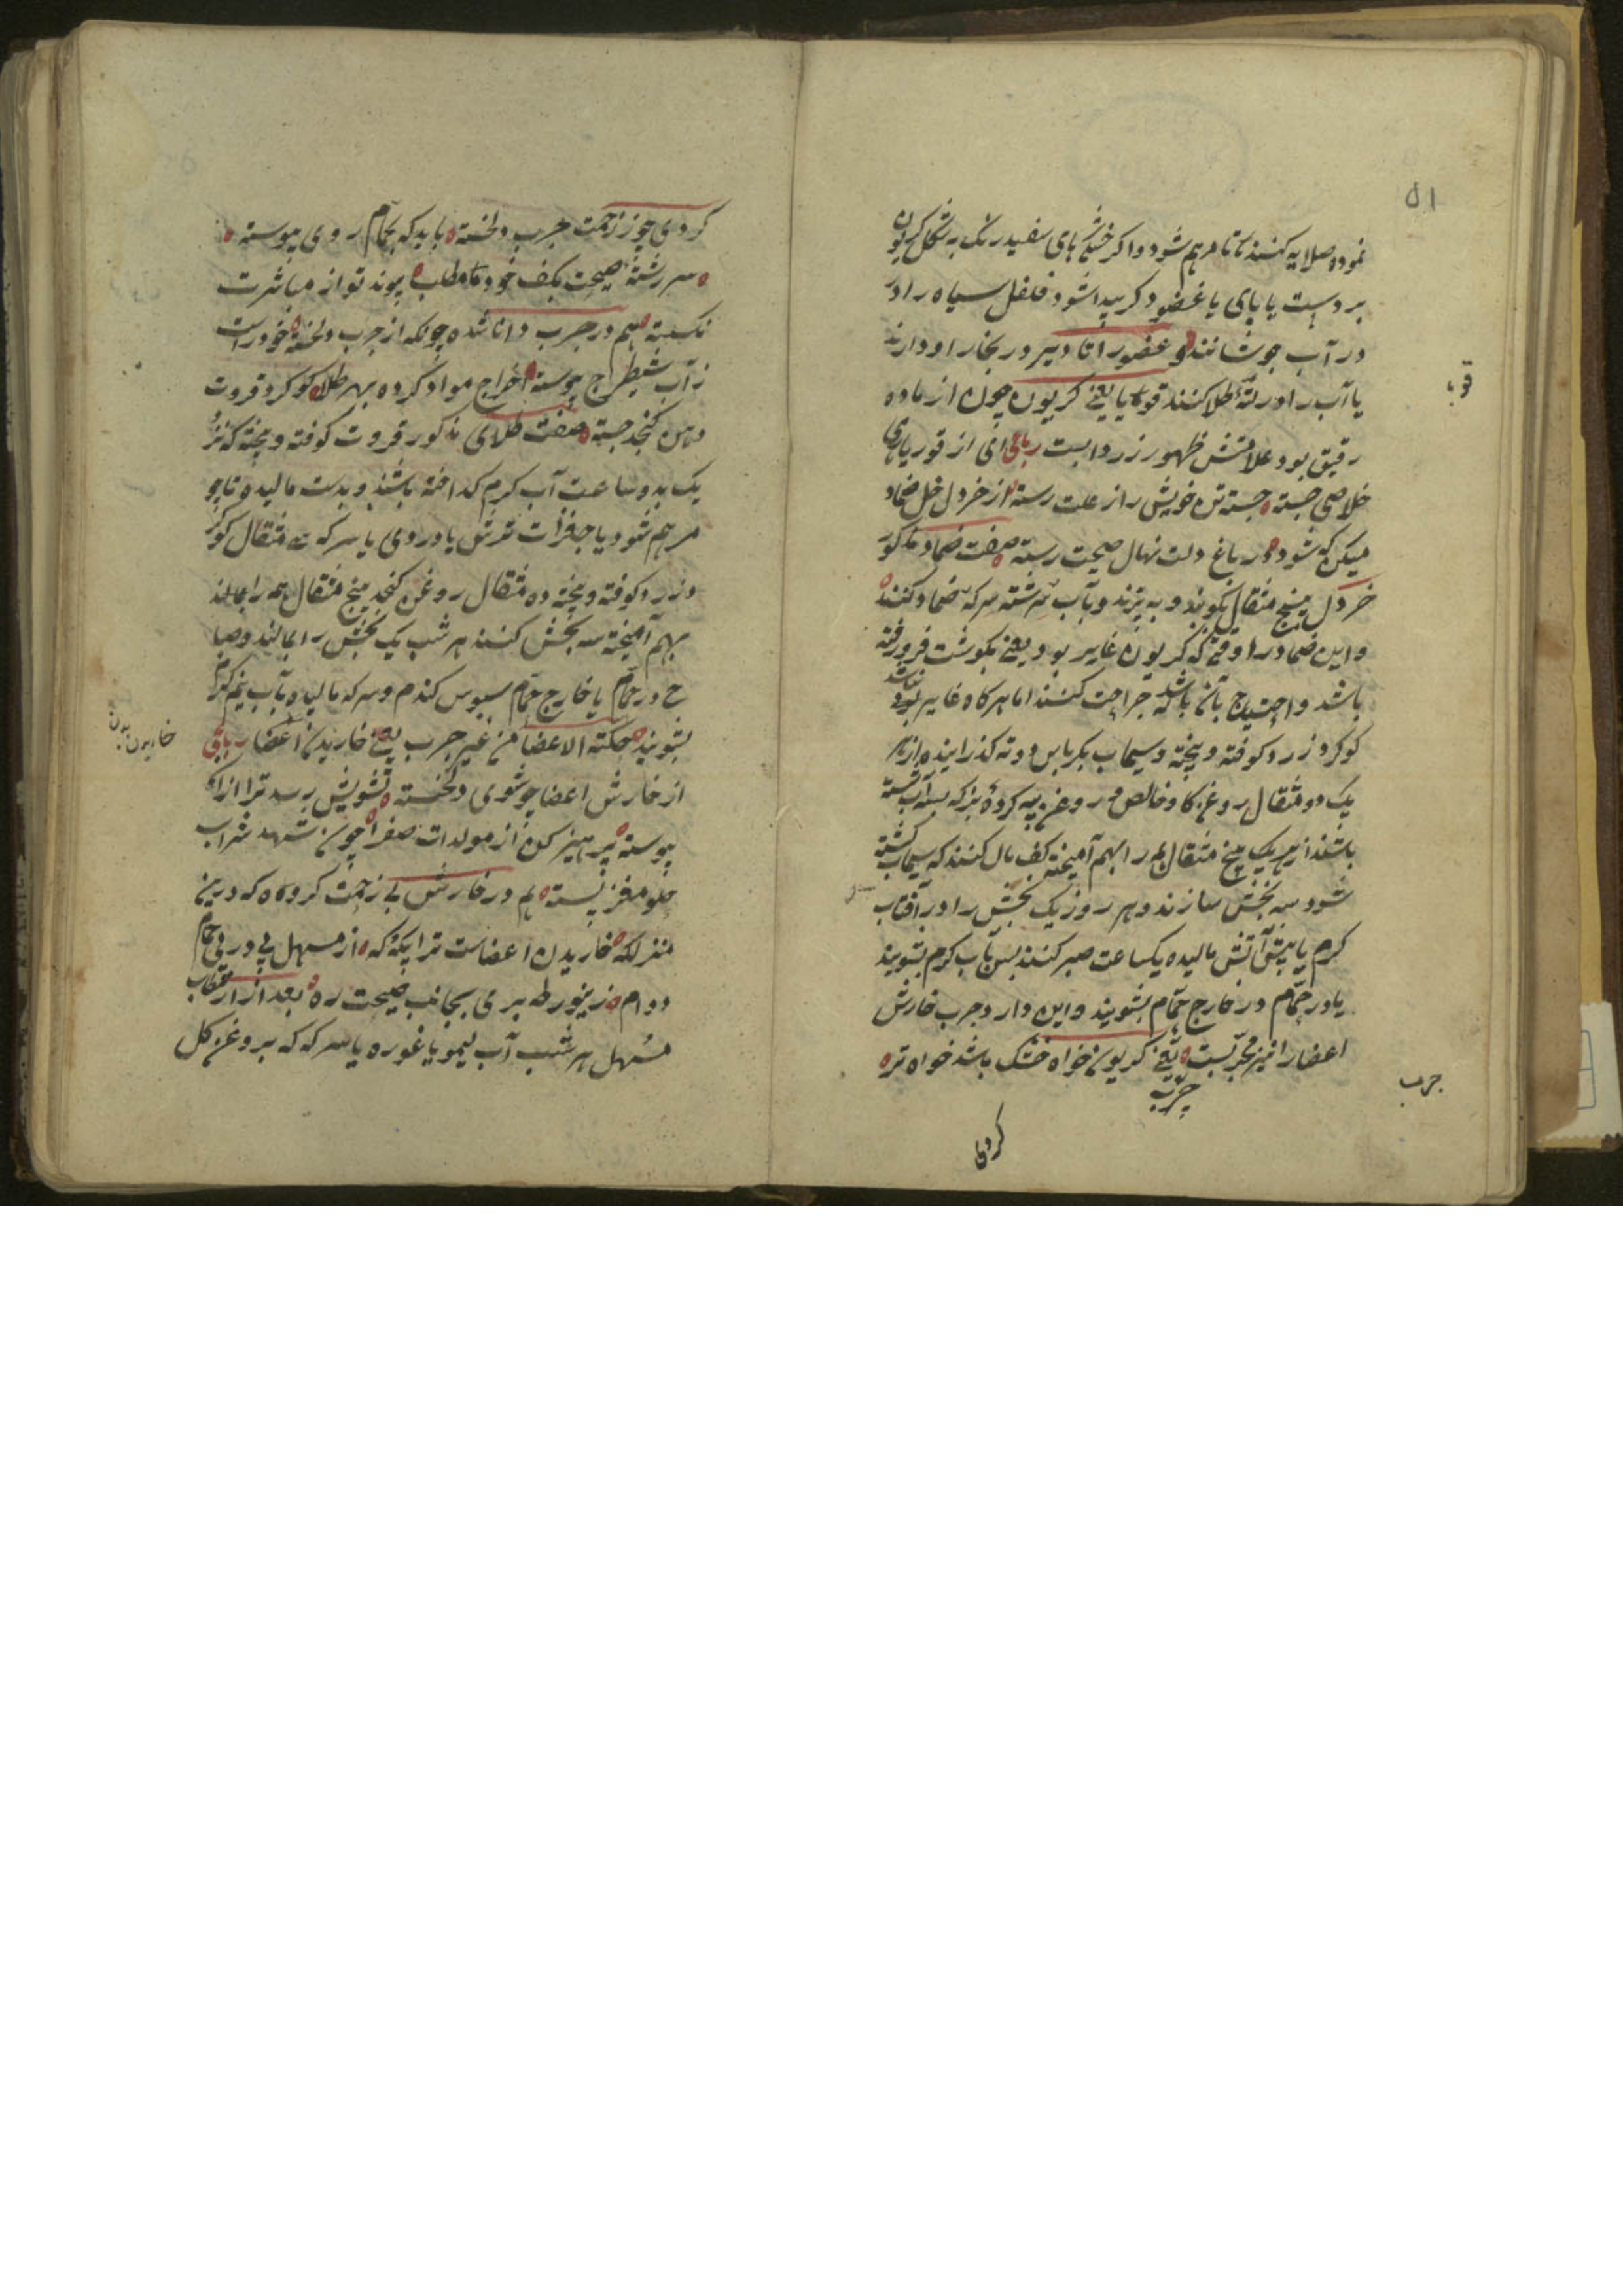 ۵۱
نموده صلایه کنند تا مرهم شود و اکر خشکی های سفید رنک به شکل کریون
بر دست یا پای یا عضو دکر پیدا شود فلفل سیاه را در
در آب جوشانند و عضو را تا دیر در بخار او دارند
قوبا
یا آب را در لته طلا کنند قوبا یعنی کریون چون از ماده
رقیق بود علامتش ظهور زردابست رباعی ای از قوبا
خلاصی جسته جسته تن خویش را ز علت رسته از خردل خل ضماد
میکن که شود در باغ دلت نهال صحت رسته صفت ضماد مذکور
خردل پنج مثقال بکوبند و به پزند و بآب سرشته سرکه ضماد کنند
و این ضماد را وقتی که کریون غایر بود یعنی بکوشت فرو رفته
باشد و احتیاج بآن باشد که جراحت کنند اما هر کاه غایر نبود
کوکرد زرد کوفته و بیخته و سیماب بکرباس دوته کذرانیده از هر
یک دو مثقال روغن کاو خالص و روغن پیه کرده بز که بسه آب شسته
باشند از هر یک پنج مثقال همه را بهم آمیخته کف مال کنند که سیماب کشته
شود سه بخش سازند و هر روز یک بخش را در آفتاب
کرم یا پیش آتش مالیده یکساعت صبر کنند پس بآب کرم بشویند
یا در حمام در خارج حمام بشویند و این دارو جرب خارش
اعضا را نیز مجربست یعنی کریون خواه خشک باشد خواه تر
جرب
جرب
کردی
کردی چو ز زحمت جرب دلخسته باید که بحمام روی پیوسته
سر رشته صحت بکف خود مطلب پیوند تو از مباشرت
نکسسته هم در جرب دانا شده چونکه از جرب دلخسته خود راست
ز آب شیطرج پیوسته اخراج مواد کرده بهر طلا کوکرد و قروت
کنجد جسته صفت طلای مذکور قروت کوفته و بیخته که نزد
یک بدو ساعت آب کرم کداخته باشند و بدست مالیده تا چو
مرهم شود یا جغرات ترش یا دردی یا سرکه سی مثقال کوکرد
زرد کوفته و بیخته ده مثقال روغن کنجد پنج مثقال همه را بمالند
بهم آمیخته سه بخش کنند هر شب یک بخش را بمالند و صبا
ح در حمام یا خارج حمام سبوس کندم و سرکه مالیده بآب نیم کرم
خاریدن بدن
بشویند حکة الاعضا من غیر جرب یعنی خاریدن اعضا رباعی
از خارش اعضا چو شوی دلخسته تشویش رسد ترا از آن
پیوسته پرهیز کن از مولدات صفرا چون شهد شراب
مغز پسته هم در خارش بی زحمت کروه که درین
منزلکه خاریدن اعضاست ترا بیکه و که از مسهل پی در پی حمام
دوام زین ورطه بری بجانب صحت ره بعد از ارتکاب
مسهل هر شب آب لیمو یا غوره یا سرکه که بروغن کل